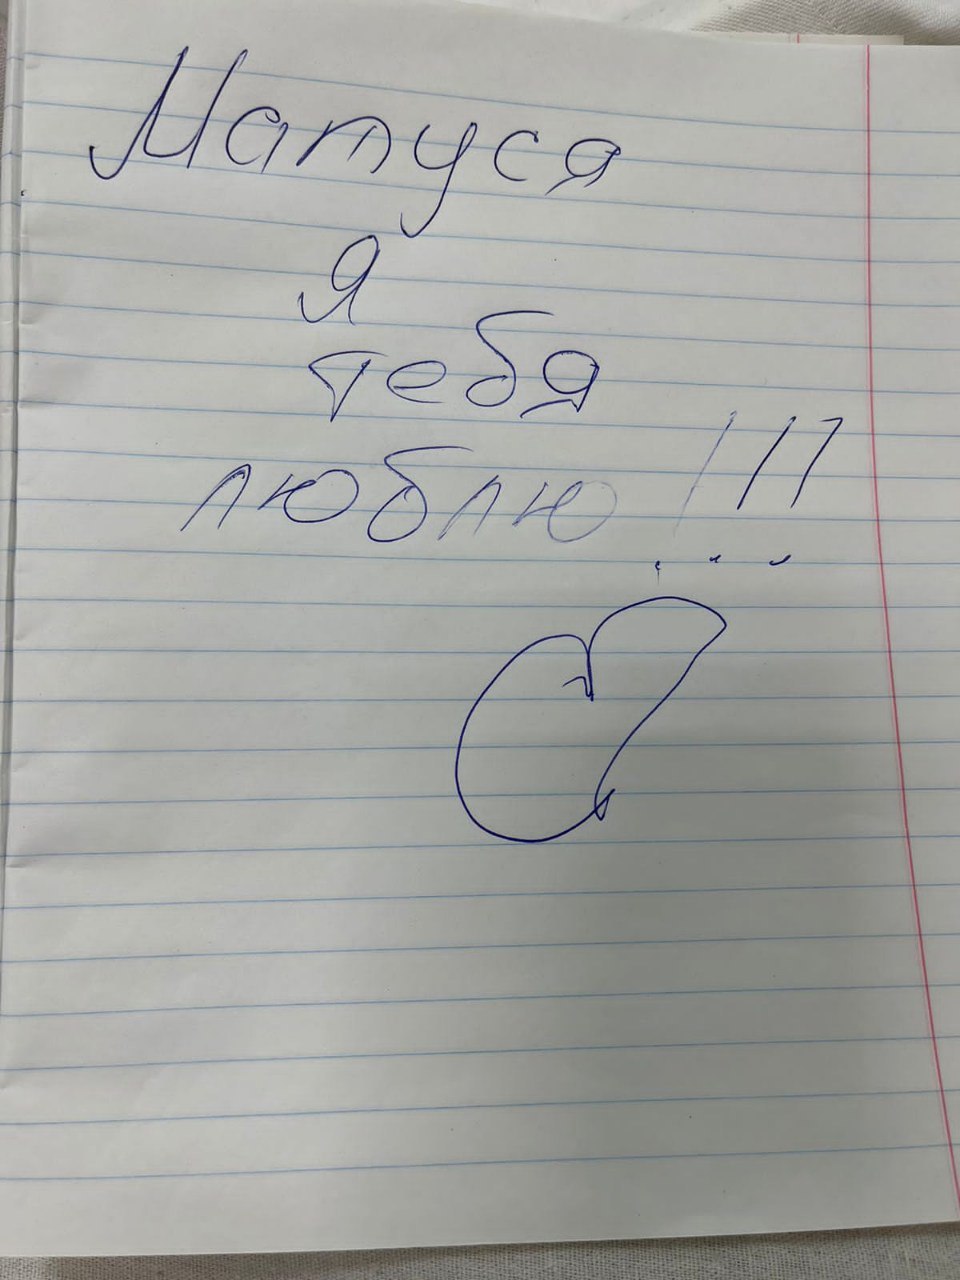 Матуся
Я
тебя
люблю!!!